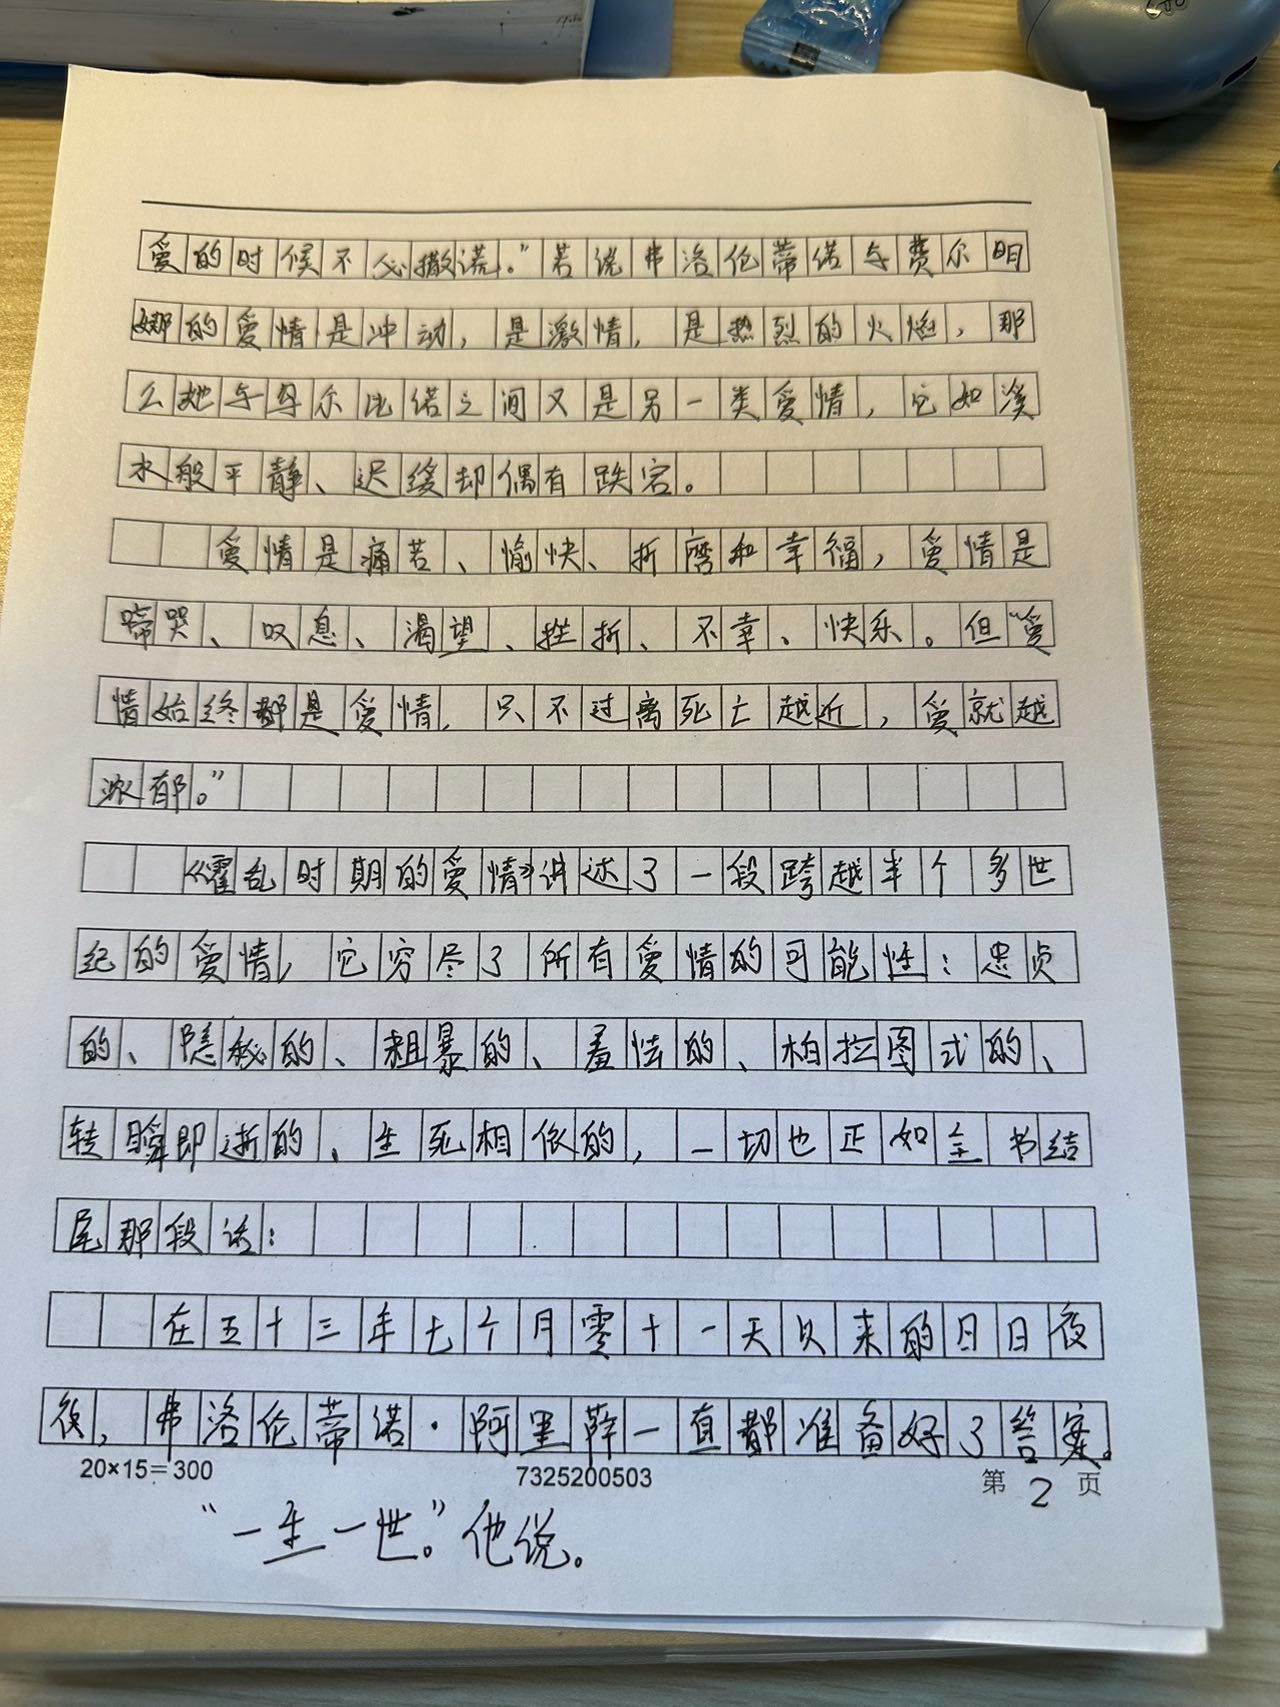 爱的时候不必撒谎。”若说弗洛伦蒂诺与费尔明
娜的爱情是冲动，是激情，是热烈的火焰，那
么她与乌尔比诺之间又是另一类爱情，它如溪
水般平静、迟缓却偶有跌宕。
爱情是痛苦、愉快、折磨和幸福，爱情是
啼哭、叹息、渴望、挫折、不幸、快乐。但“爱
情始终都是爱情，只不过离死亡越近，爱就越
浓郁。”
《霍乱时期的爱情》讲述了一段跨越半个多世
纪的爱情，它穷尽了所有爱情的可能性：忠贞
的、隐秘的、粗暴的、羞怯的、柏拉图式的、
转瞬即逝的、生死相依的，一切也正如全书结
尾那段话：
在五十三年七个月零十一天以来的日日夜
夜，弗洛伦蒂诺·阿里萨一直都准备好了答案。
20×15=300 7325200503 第2页
“一生一世。”他说。